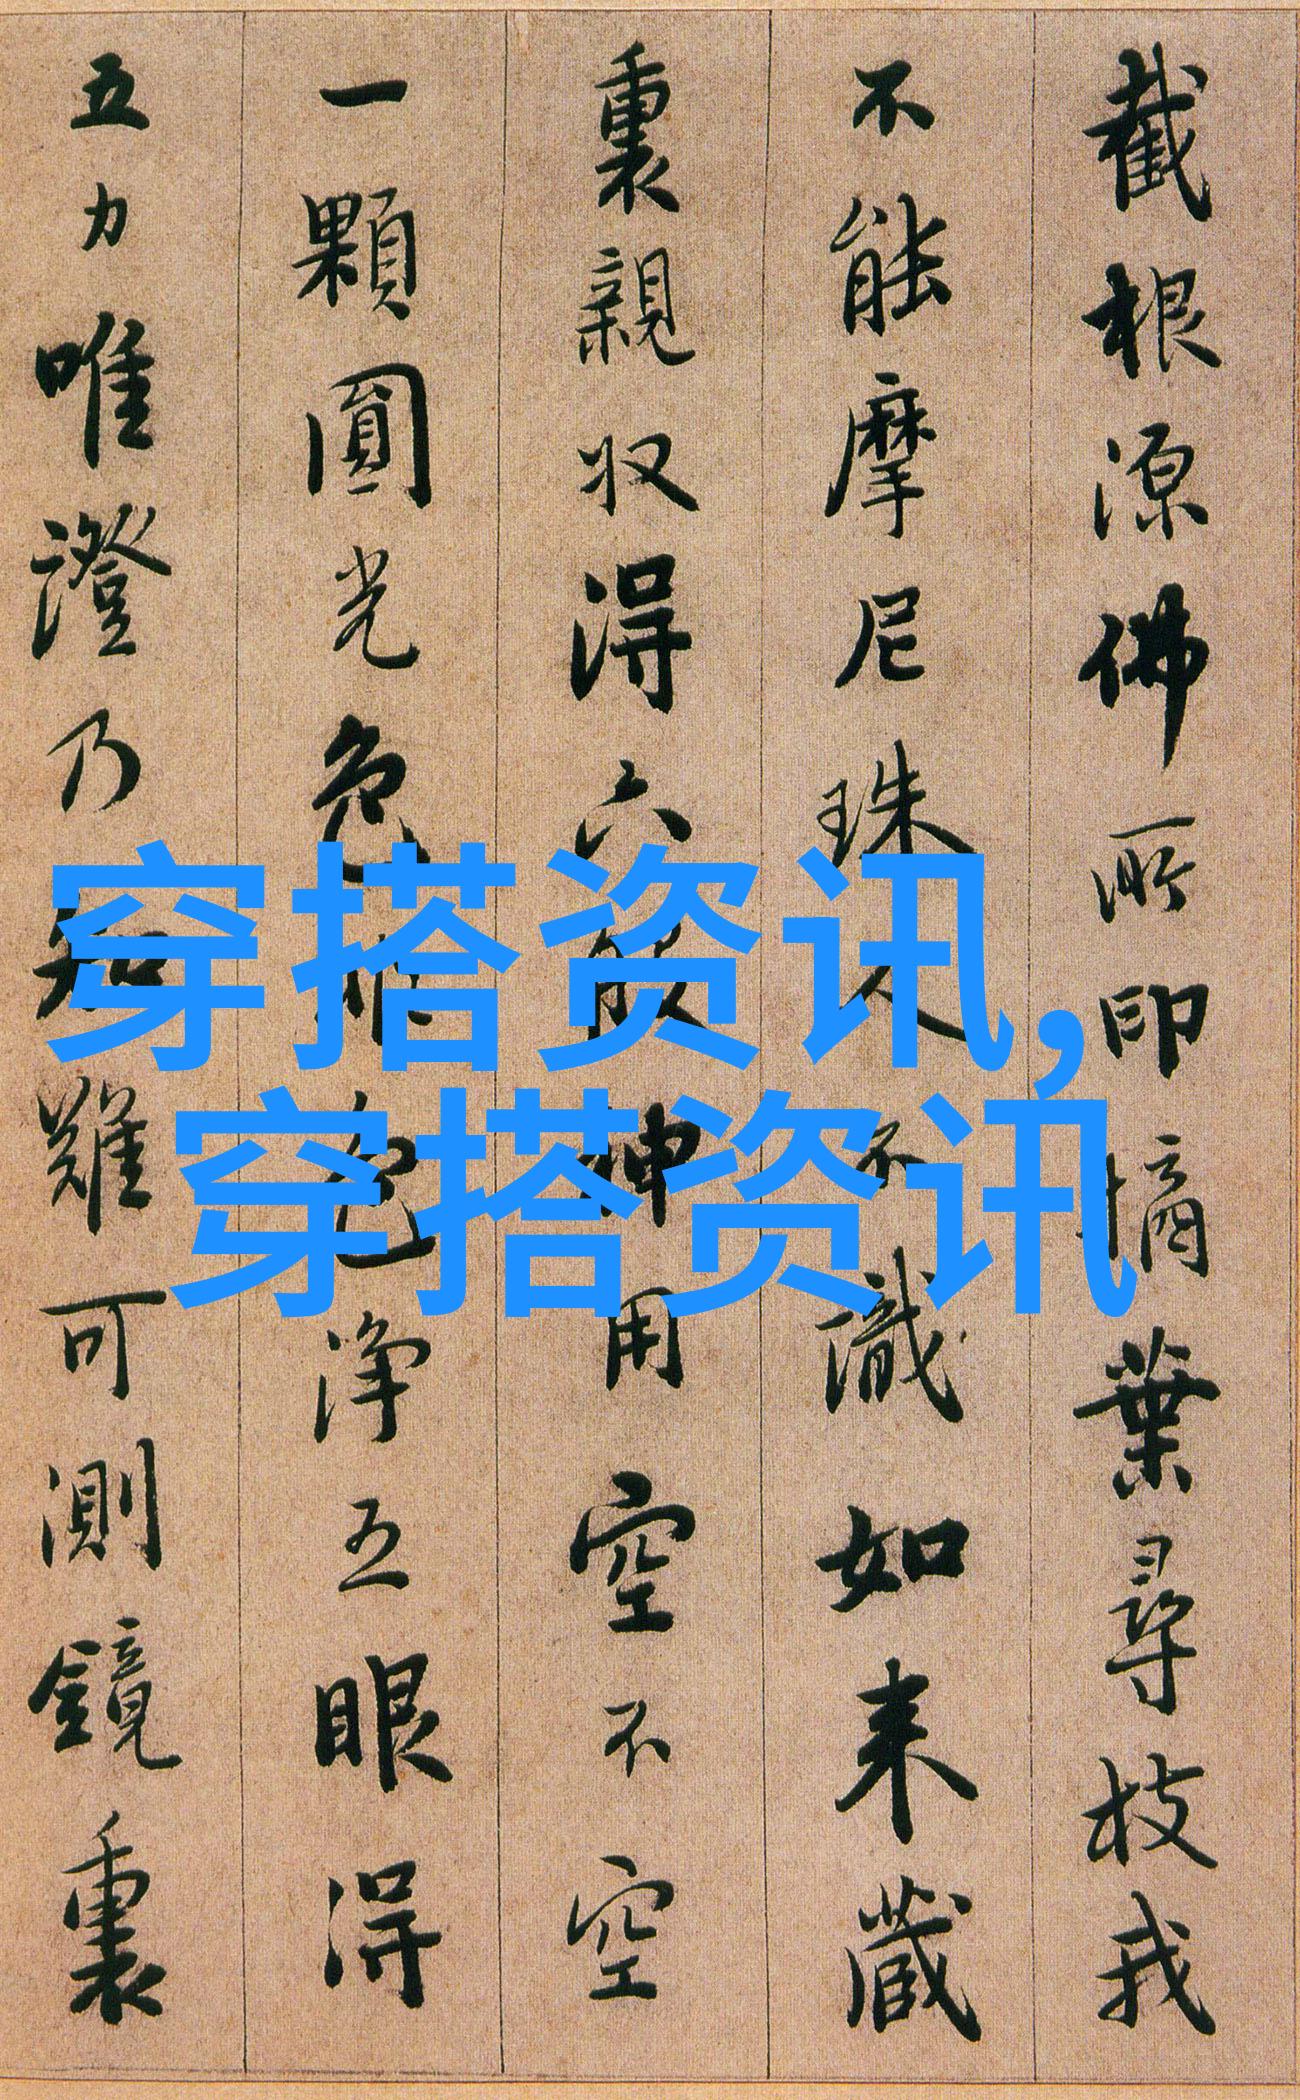 截根源佛所印摘葉尋枝我
不能摩尼珠人不識如来藏
裏親収得六般神用空不空
一顆圓光色非色淨五眼得
五力唯證乃知難可測鏡裏
穿搭资讯,
穿搭资讯